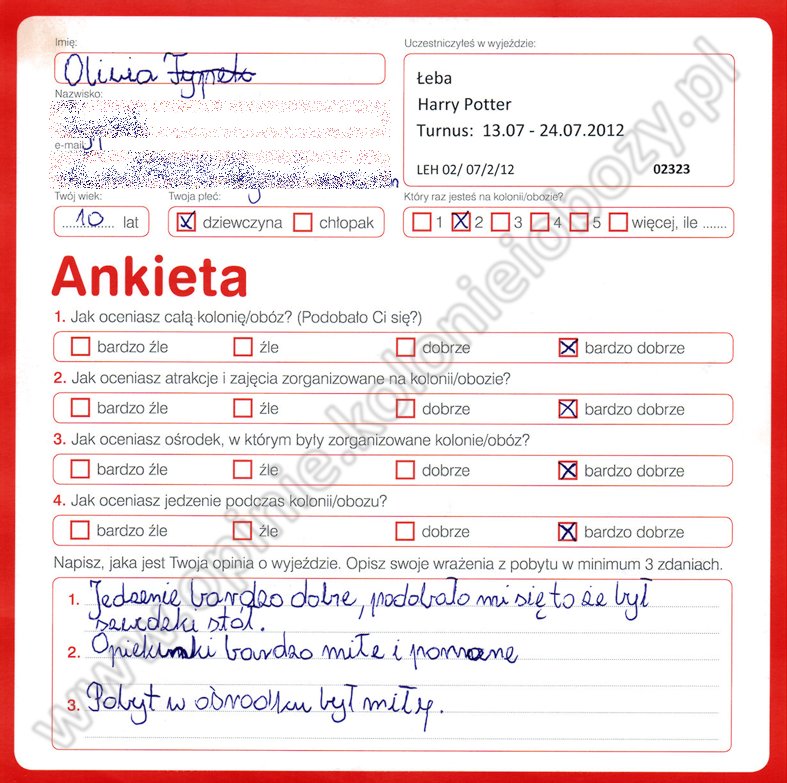 Imię:
Uczestniczyłeś w wyjeździe:
Oliwia
Łeba
Harry Potter
Turnus: 13.07 - 24.07.2012
LEH 02/ 07/2/12 02323
Nazwisko:
e-mail
Twój wiek: Twoja płeć: Który raz jesteś na kolonii/obozie?
10 lat dziewczyna chłopak 1 2 3 4 5 więcej, ile .......
Ankieta
1. Jak oceniasz całą kolonię/obóz? (Podobało Ci się?)
bardzo źle źle dobrze bardzo dobrze
2. Jak oceniasz atrakcje i zajęcia zorganizowane na kolonii/obozie?
bardzo źle źle dobrze bardzo dobrze
3. Jak oceniasz ośrodek, w którym były zorganizowane kolonie/obóz?
bardzo źle źle dobrze bardzo dobrze
4. Jak oceniasz jedzenie podczas kolonii/obozu?
bardzo źle źle dobrze bardzo dobrze
Napisz, jaka jest Twoja opinia o wyjeździe. Opisz swoje wrażenia z pobytu w minimum 3 zdaniach.
1. Jedzenie bardzo dobre, podobało mi się to że był
szwedzki stół.
2. Opiekunki bardzo miłe i pomocne
3. Pobyt w ośrodku był miły.
www.opinie.kolonieiobozy.pl